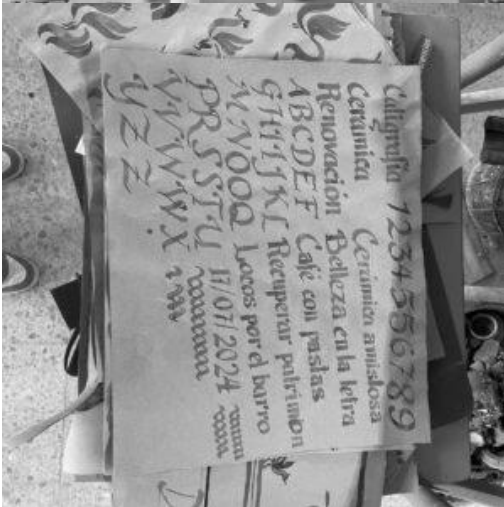 Caligrafía 1234556789
Cerámica Cerámica amistosa
Renovación Belleza en la letra
ABCDEF Café con pastas
GHIIJKL Recuperar patrimon
MNOOQ Locos por el barro
PRSSTU 17/07/2024
VVWWX
YZZ